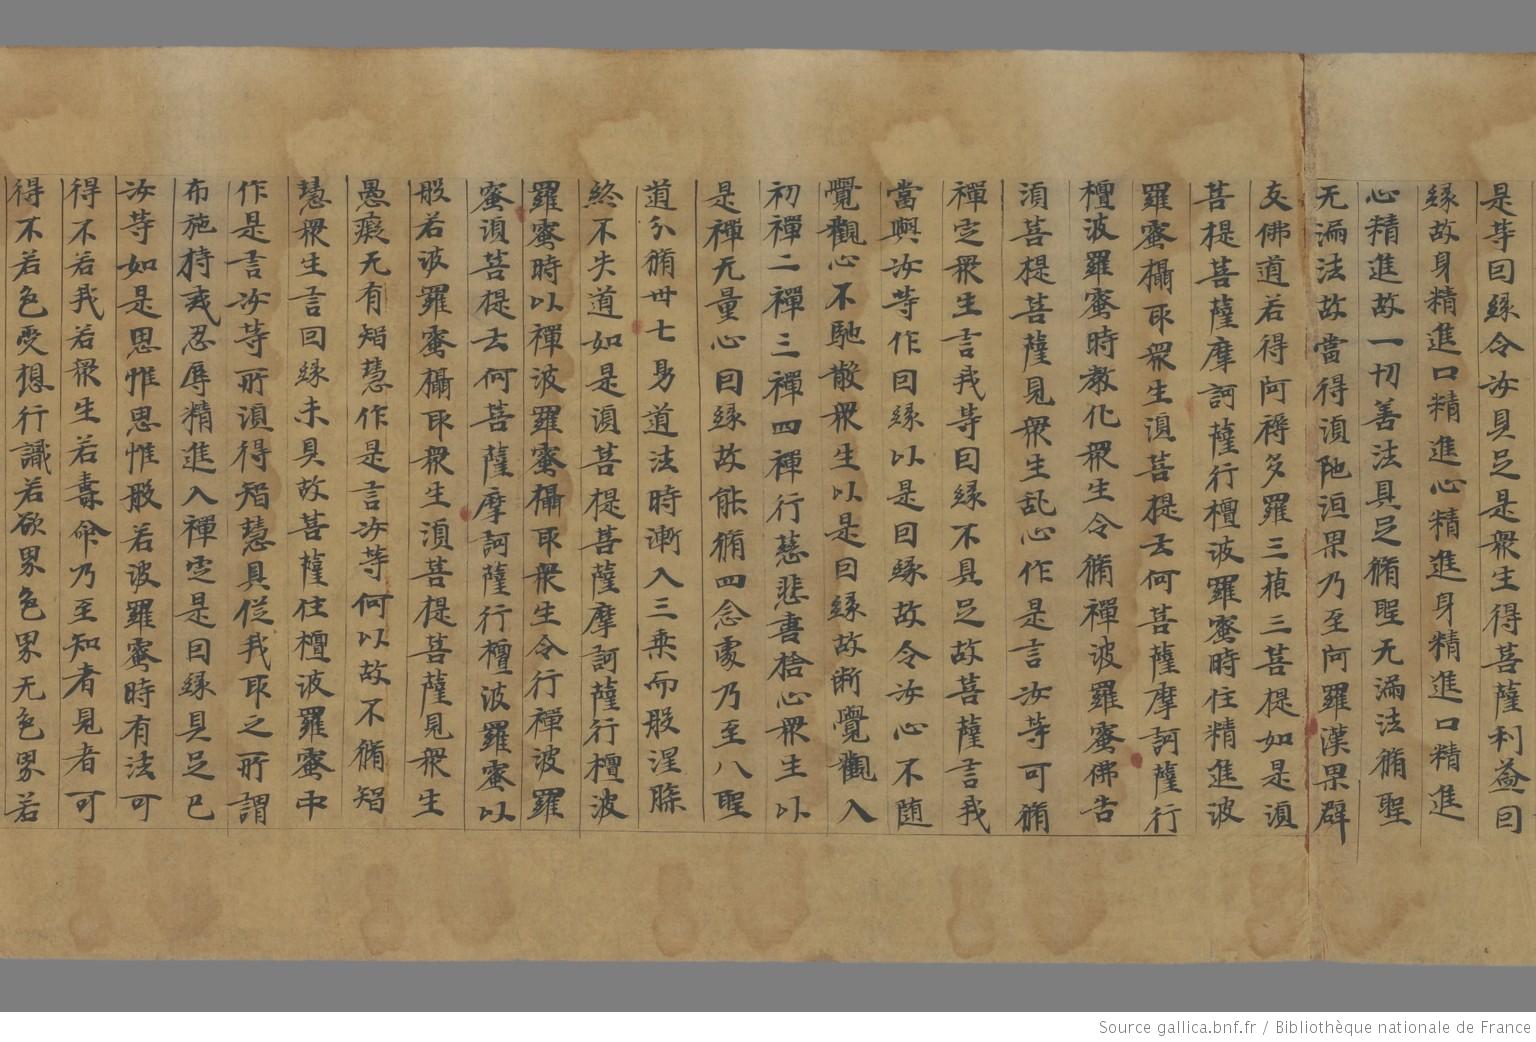 是等因緣令汝具足是衆生得菩薩利益因
緣故身精進口精進心精進身精進口精進
心精進故一切善法具足脩聖无漏法脩聖
无漏法故當得湏陁洹果乃至阿羅漢果辟
支佛道若得阿耨多羅三藐三菩提如是湏
菩提菩薩摩訶薩行檀波羅蜜時住精進波
羅蜜攝取衆生湏菩提云何菩薩摩訶薩行
檀波羅蜜時教化衆生令脩禪波羅蜜佛告
湏菩提菩薩見衆生乱心作是言汝等可脩
禪定衆生言我等因緣不具足故菩薩言我
當與汝等作因緣以是因緣故令汝心不随
覺觀心不馳散衆生以是因緣故断覺觀入
初禪二禪三禪四禪行慈悲喜捨心衆生以
是禪无量心因緣故能脩四念處乃至八聖
道分脩卅七助道法時漸入三乘而般涅槃
終不失道如是湏菩提菩薩摩訶薩行檀波
羅蜜時以禪波羅蜜攝取衆生令行禪波羅
蜜湏菩提云何菩薩摩訶薩行檀波羅蜜以
般若波羅蜜攝取衆生湏菩提菩薩見衆生
愚癡无有智慧作是言汝等何以故不脩智
慧衆生言因緣未具故菩薩住檀波羅蜜中
作是言汝等所湏得智慧具從我取之所謂
布施持戒忍辱精進入禪定是因緣具足已
汝等如是思惟思惟般若波羅蜜時有法可
得不若我若衆生若壽命乃至知者見者可
得不若色受想行識若欲界色界无色界若
Source gallica.bnf.fr / Bibliothèque nationale de France